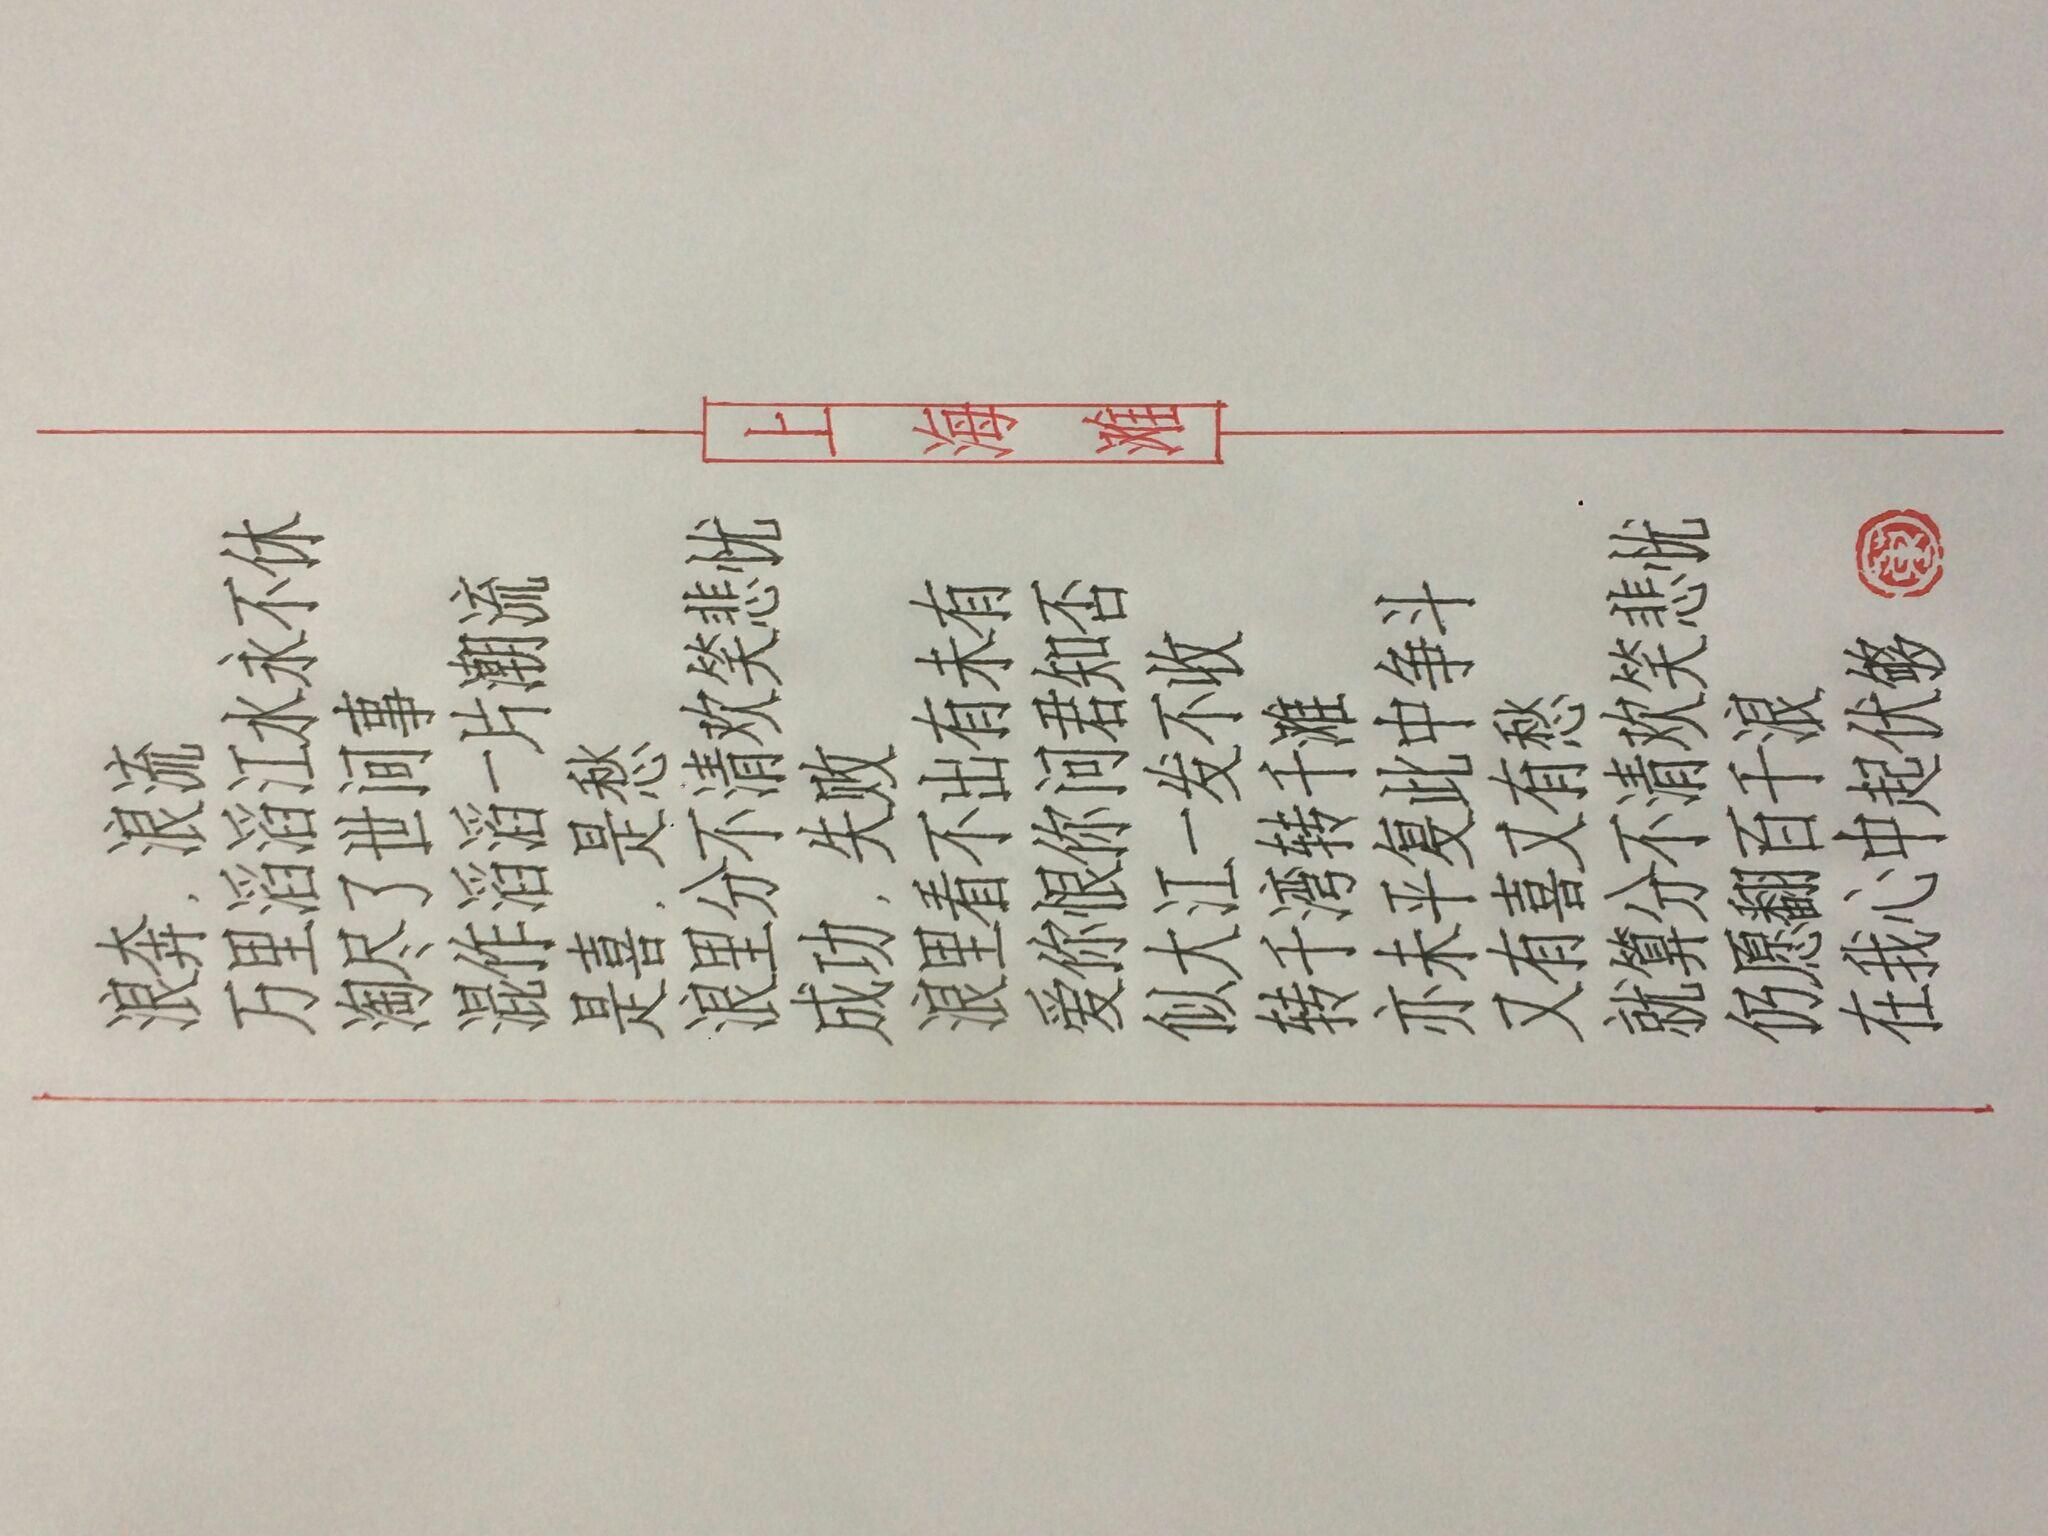 上海滩
浪奔.浪流
万里滔滔江水永不休
淘尽了世间事
混作滔滔一片潮流
是喜.是愁
浪里分不清欢笑悲忧
成功.失败
浪里看不出有未有
爱你恨你问君知否
似大江一发不收
转千湾转千滩
亦未平复此中争斗
又有喜又有愁
就算分不清欢笑悲忧
仍愿翻百千浪
在我心中起伏够